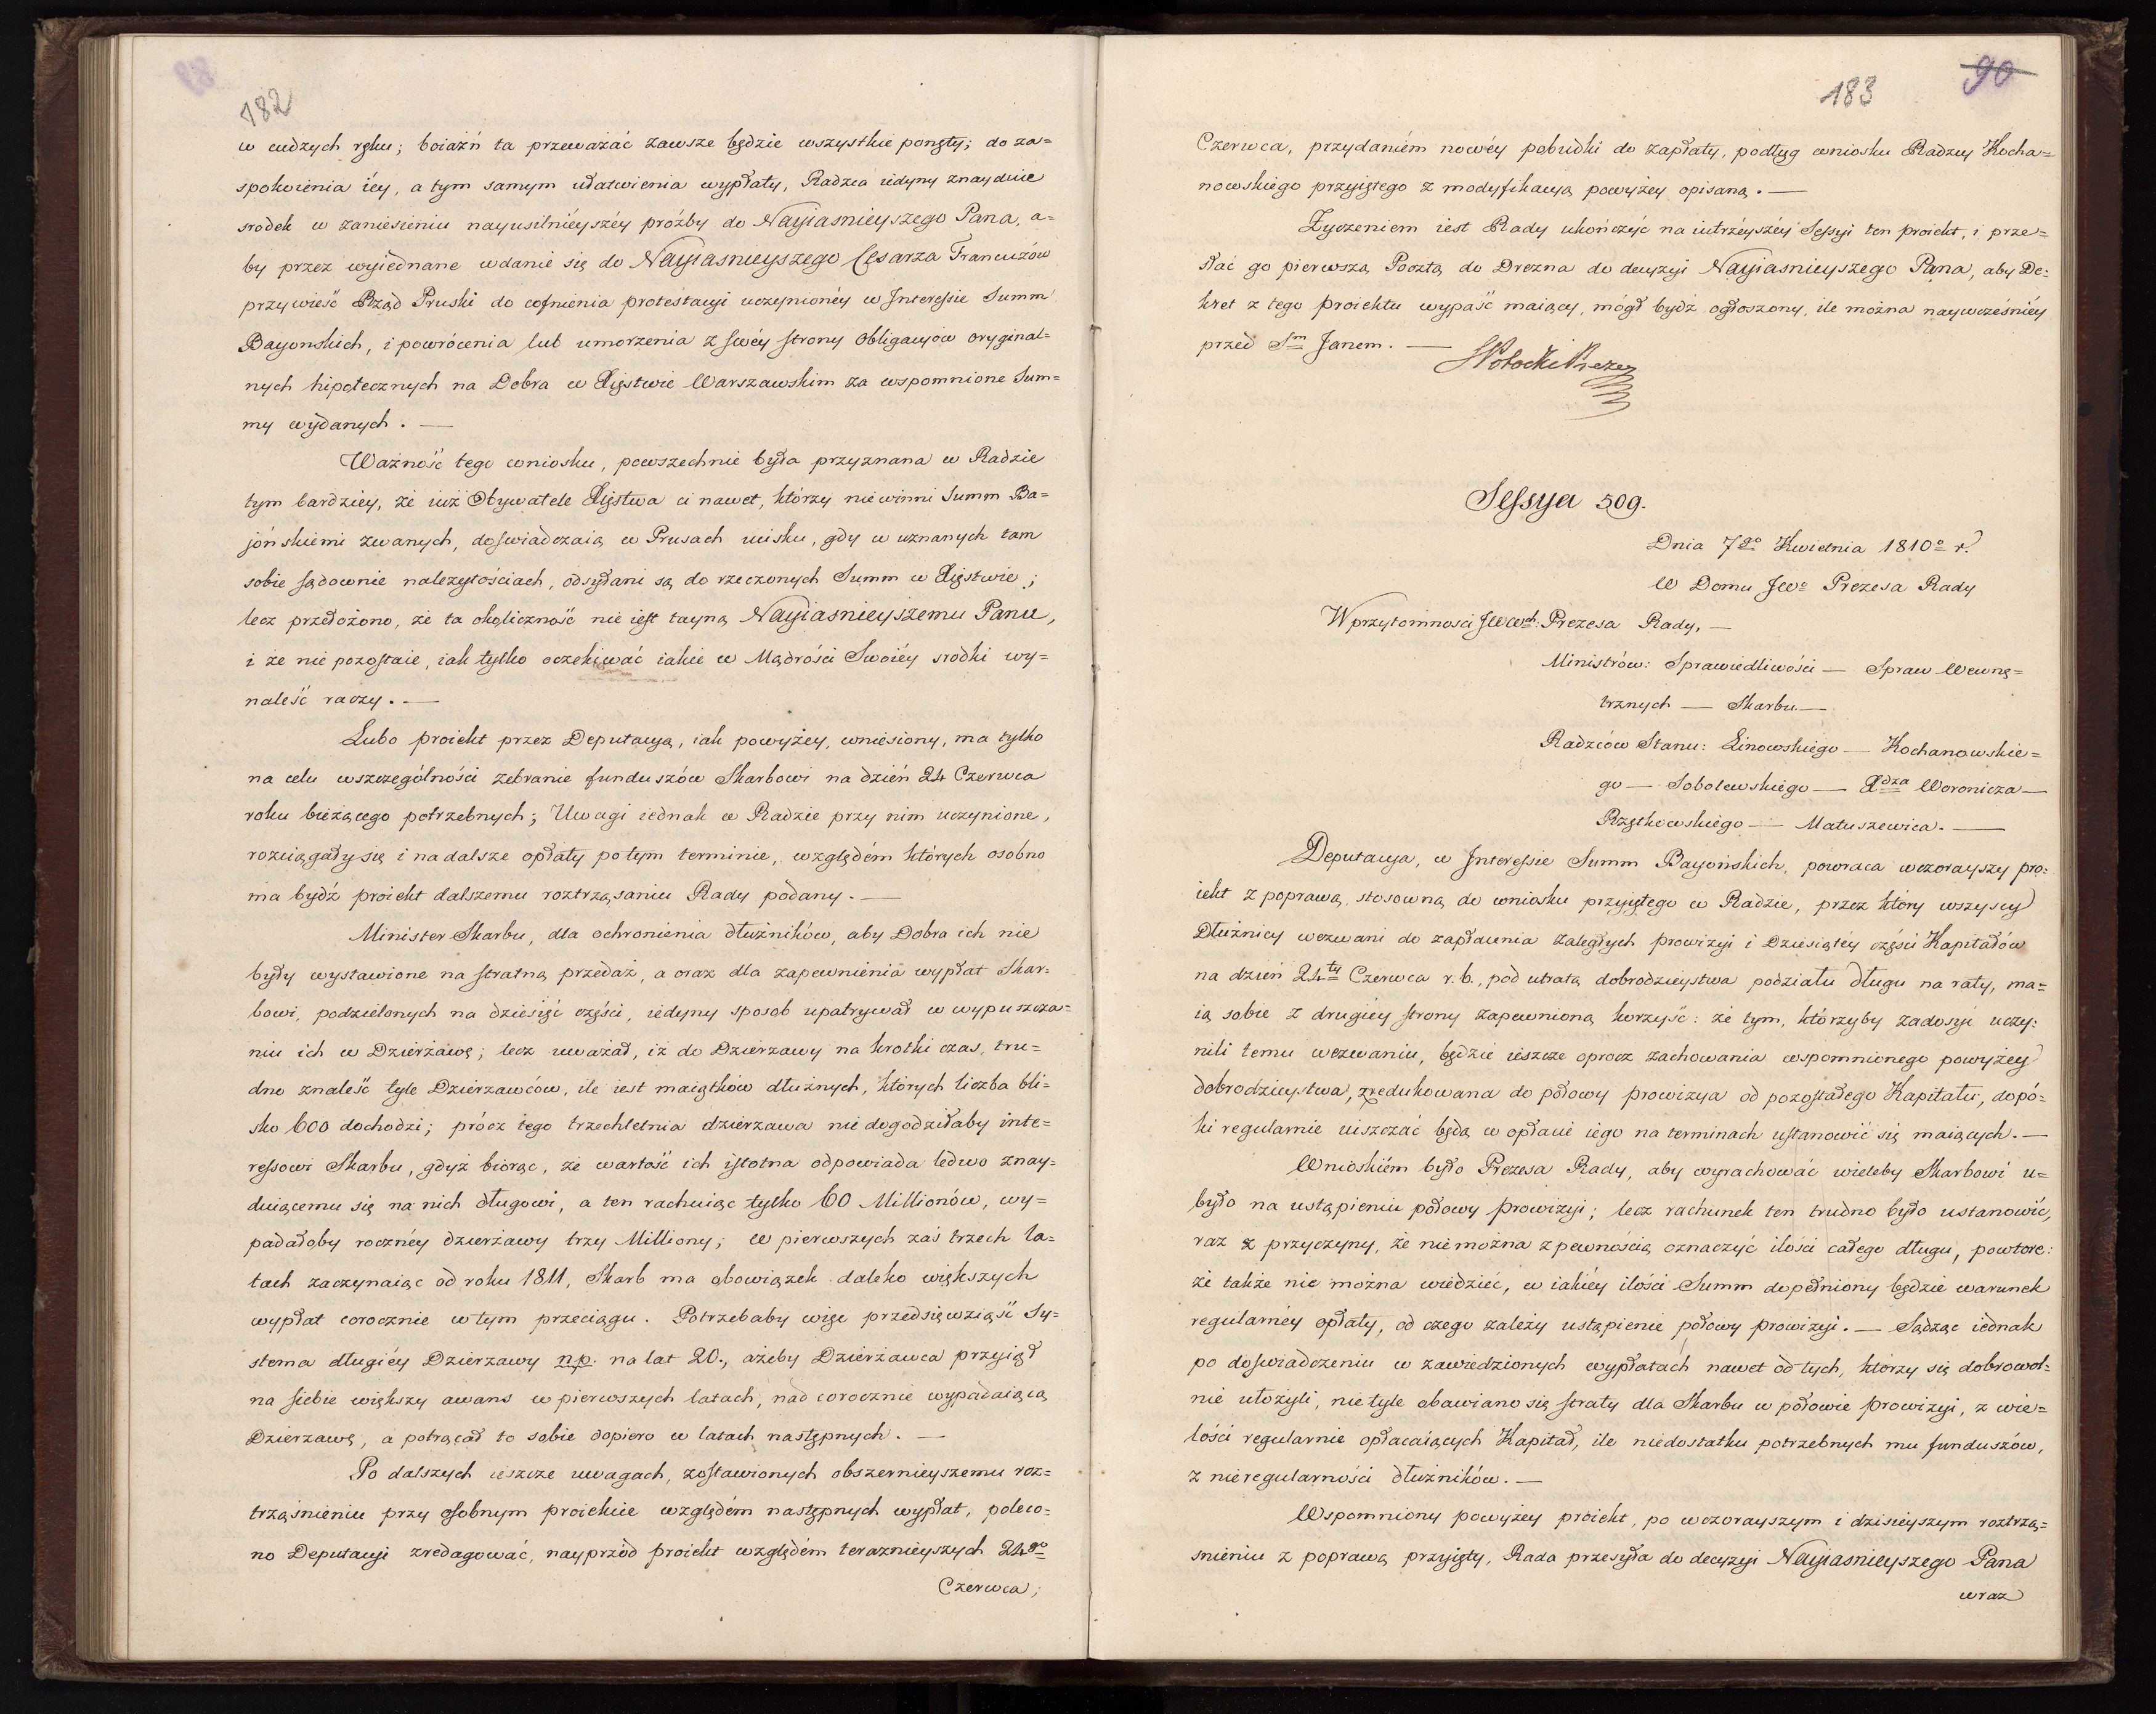 182
w cudzych ręku; boiaźń ta przeważać zawsze będzie wszystkie ponęty; do za=
spokoienia iey, a tym samym ułatwienia wypłaty, Radzca iedyny znayduie
srodek w zaniesieniu nayusilnieyszéy proźby do Nayiasnieyszego Pana, a=
by przez wyiednane wdanie się do Nayiasnieyszego Cesarza Francuzów
przywieść Rząd Pruski do cofnienia protestacyi uczynionéy w Interessie Summ
Bayonskich, i powrócenia lub umorzenia z swéy strony Obligacyiow oryginal=
nych hipotecznych na Dobra w Xięstwie Warszawskim za wspomnione Sum=
my wydanych. —
Ważność tego wniosku, powszechnie była przyznana w Radzie
tym bardziey, że iuż Obywatele Xięstwa ci nawet, którzy nie winni Summ Ba=
jońskiemi zwanych, doświadczaią w Prusach ucisku, gdy w uznanych tam
sobie sądownie należytościach, odsyłani są do rzeczonych Summ w Xięstwie;
lecz przełożono, że ta okoliczność nie iest tayną Nayiasnieyszemu Panu,
i że nie pozostaie, iak tylko oczekiwać iakie w Mądrości Swoiéy srodki wy=
naleść raczy. —
Lubo proiekt przez Deputacyą, iak powyżey, wniesiony, ma tylko
na celu wszczególności zebranie funduszów Skarbowi na dzień 24 Czerwca
roku bieżącego potrzebnych; Uwagi iednak w Radzie przy nim uczynione,
rozciągały się i na dalsze opłaty po tym terminie, względem których osobno
ma bydź proiekt dalszemu roztrząsaniu Rady podany. —
Minister Skarbu, dla ochronienia dłużników, aby Dobra ich nie
były wystawione na stratną przedaż, a oraz dla zapewnienia wypłat Skar=
bowi, podzielonych na dziesięć części, iedyny sposob upatrywał w wypuszcza=
niu ich w Dzierżawę; lecz uważał, iż do Dzierzawy na krotki czas, tru=
dno znaleść tyle Dzierzawców, ile iest maiątków dłużnych, których liczba bli=
sko 600 dochodzi; prócz tego trzechletnia dzierzawa nie dogodziłaby inte=
ressowi Skarbu, gdyż biorąc, że wartość ich istotna odpowiada ledwo znay=
duiącemu się na nich długowi, a ten rachuiąc tylko 60 Millionów, wy=
padałoby roczney dzierżawy trzy Milliony; w pierwszych zaś trzech la=
tach zaczynaiąc od roku 1811, Skarb ma obowiązek daleko większych
wypłat corocznie w tym przeciągu. Potrzebaby więc przedsięwziąść Sy=
stema długiéy Dzierzawy np. na lat 20., ażeby Dzierżawca przyiął
na siebie większy awans w pierwszych latach, nad corocznie wypadaiącą
Dzierzawę, a potrącał to sobie dopiero w latach następnych. —
Po dalszych ieszcze uwagach, zostawionych obszernieyszemu roz=
trząsnieniu przy osobnym proiekcie względem następnych wypłat, poleco=
no Deputacyi zredagować, nayprzód proiekt względem teraznieyszych 24go
Czerwca;
183
90
Czerwca, przydaniém nowéy pobudki do zapłaty, podług wniosku Radzcy Kocha=
nowskiego przyiętego z modyfikacyą powyżey opisaną. —
Życzeniem iest Rady ukończyć na iutrzeyszéy Sessyi ten proiekt, i prze=
słać go pierwszą Pocztą do Drezna do decyzyi Nayiasnieyszego Pana, aby De=
kret z tego proiektu wypaść maiący, mógł bydź ogłoszony, ile można naywcześniéy
przed Sm Janem. —
SPotocki Prezes
Sessya 509.
Dnia 7go Kwietnia 1810o r.
W Domu JWo Prezesa Rady
W przytomnosci JWWch: Prezesa Rady, —
Ministrów: Sprawiedliwości — Spraw Wewnę=
trznych — Skarbu —
Radzców Stanu: Linowskiego — Kochanowskie=
go — Sobolewskiego — Xdza Woronicza —
Rzętkowskiego — Matuszewica. —
Deputacya, w Interessie Summ Bayońskich, powraca wczorayszy pro=
iekt z poprawą, stosowną do wniosku przyiętego w Radzie, przez który wszyscy
Dłużnicy wezwani do zapłacenia zaległych prowizyi i Dziesiątéy części Kapitałów
na dzień 24ty Czerwca r. b., pod utratą dobrodzieystwa podziału długu na raty, ma=
ią sobie z drugiéy strony zapewnioną korzyść: że tym, którzyby zadosyć uczy=
nili temu wezwaniu, będzie ieszcze oprocz zachowania wspomnionego powyżey
dobrodzieystwa, zredukowana do połowy prowizya od pozostałego Kapitału, dopó=
ki regularnie uiszczać będą w opłacie iego na terminach ustanowić się maiących. —
Wnioskiém było Prezesa Rady, aby wyrachować wieleby Skarbowi u=
było na ustąpieniu połowy prowizyi; lecz rachunek ten trudno było ustanowić,
raz z przyczyny, że nie można z pewnością oznaczyć ilości całego długu, powtore:
że także nie można wiedzieć, w iakiéy ilości Summ dopełniony będzie warunek
regularnéy opłaty, od czego zależy ustąpienie połowy prowizyi. — Sądząc iednak
po doświadczeniu w zawiedzionych wypłatach nawet od tych, którzy się dobrowol=
nie ułożyli, nie tyle obawiano się straty dla Skarbu w połowie prowizyi, z wie=
lości regularnie opłacaiących Kapitał, ile niedostatku potrzebnych mu funduszów,
z nieregularności dłużników. —
Wspomniony powyżey proiekt, po wczorayszym i dzisieyszym roztrzą=
snieniu z poprawą przyięty, Rada przesyła do decyzyi Nayiasnieyszego Pana
wraz